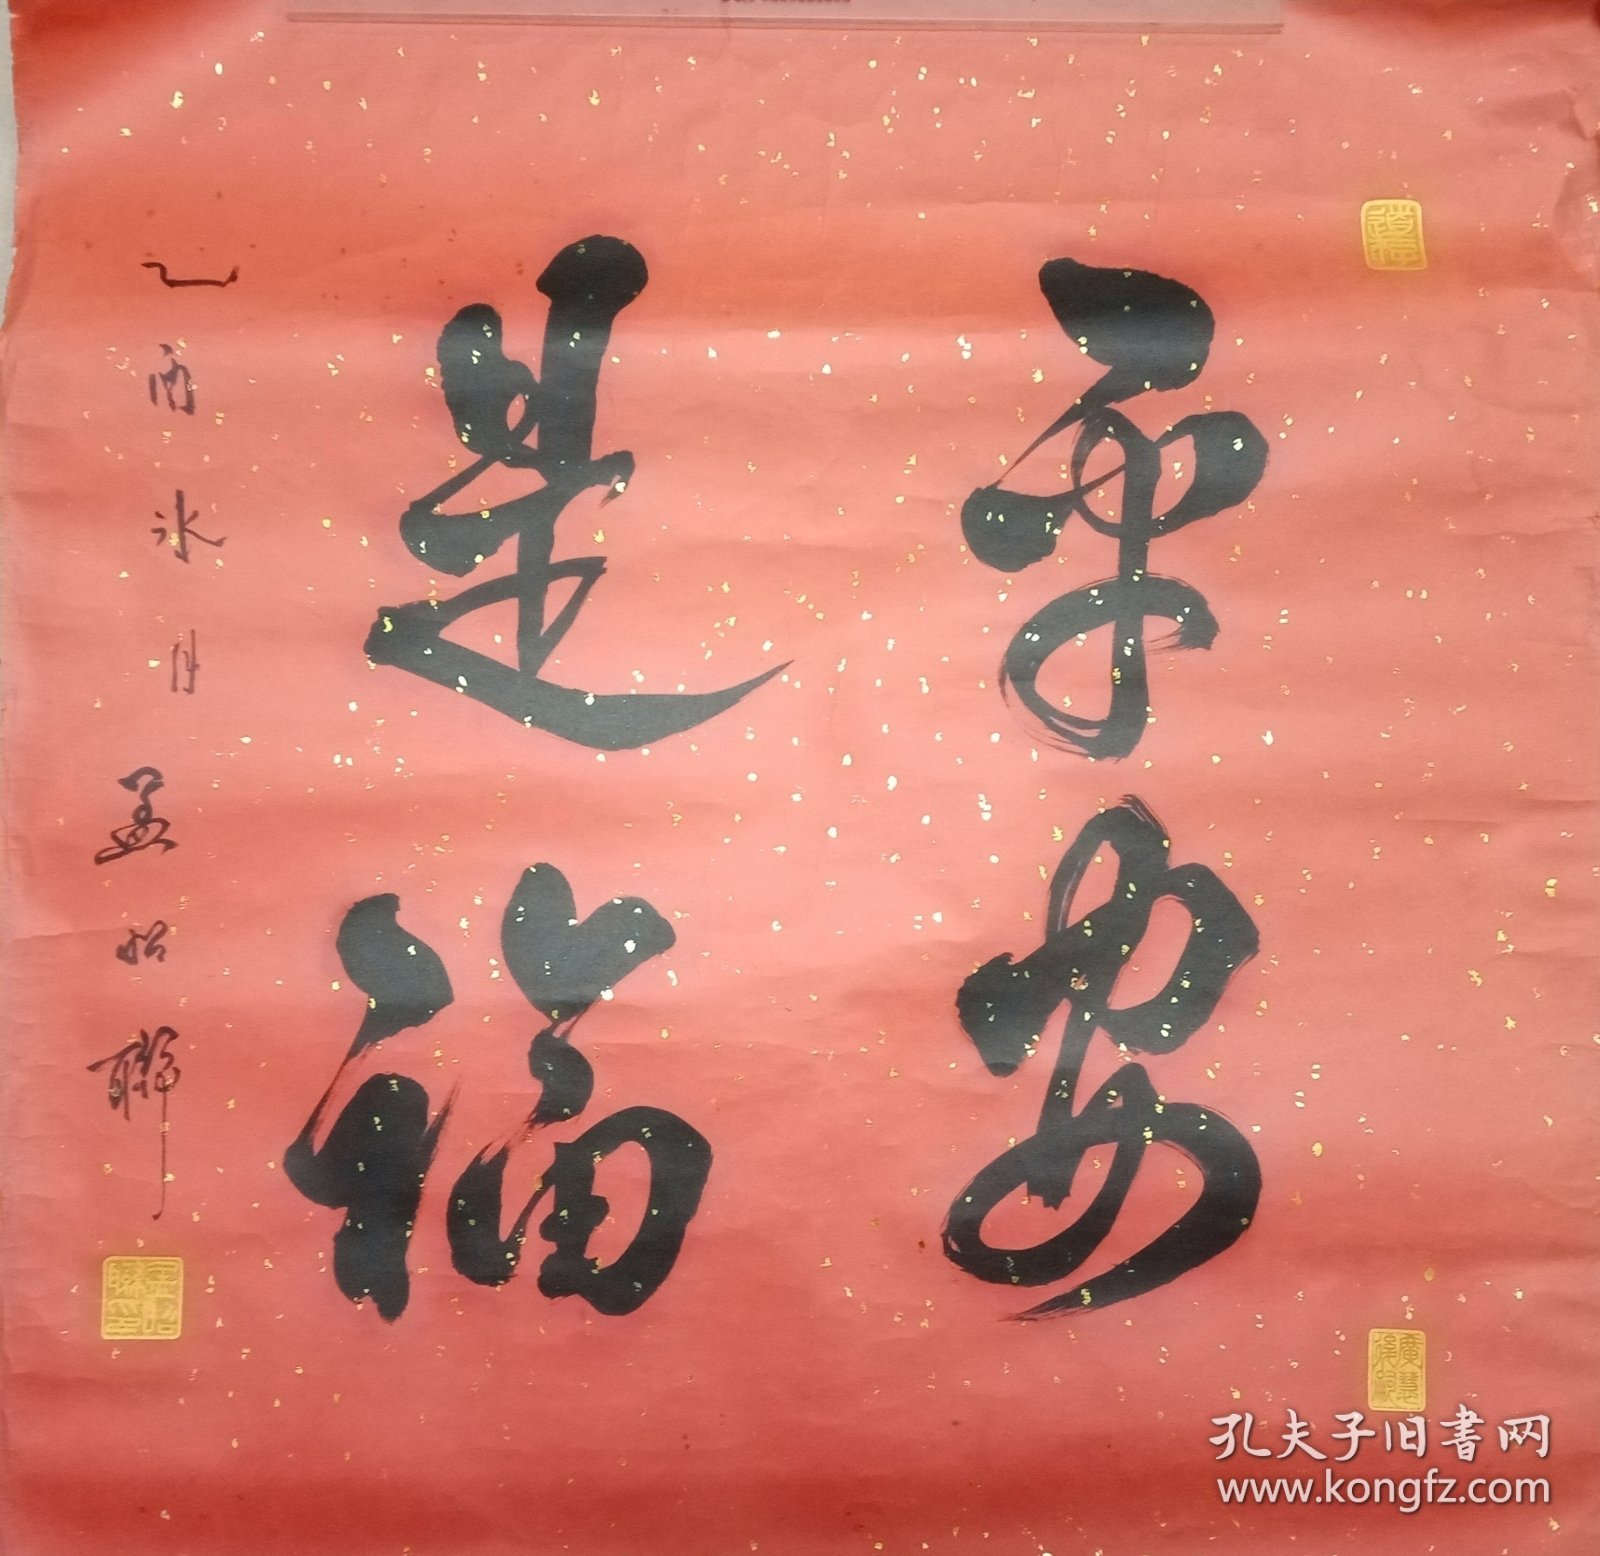 平安
是福
乙酉冰月孟昭聯
孟昭聯印
孔夫子旧书网
www.kongfz.com